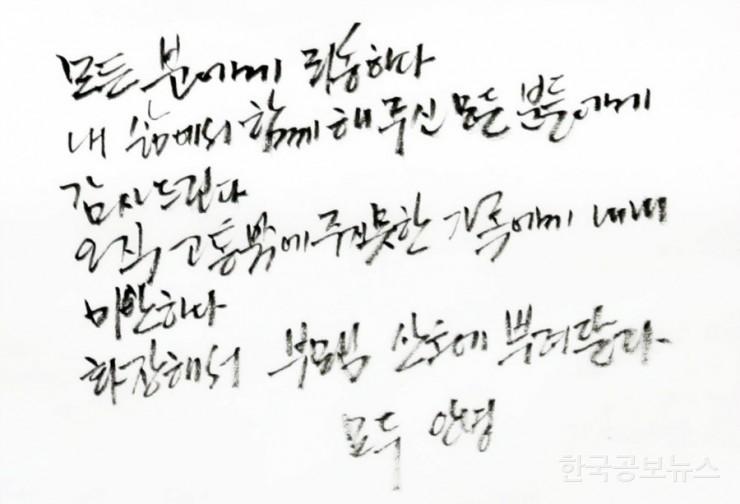 모든 분에게 죄송하다
내 삶에서 함께 해 주신 모든 분들에게
감사드린다
오직 고통밖에 주지못한 가족에게 내내
미안하다
화장해서 부모님 산소에 뿌려달라.
모두 안녕
한국공보뉴스